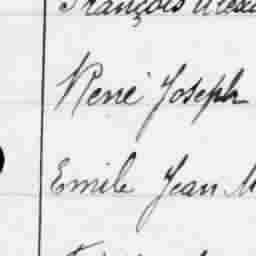 François
René Joseph
Emile Jean M